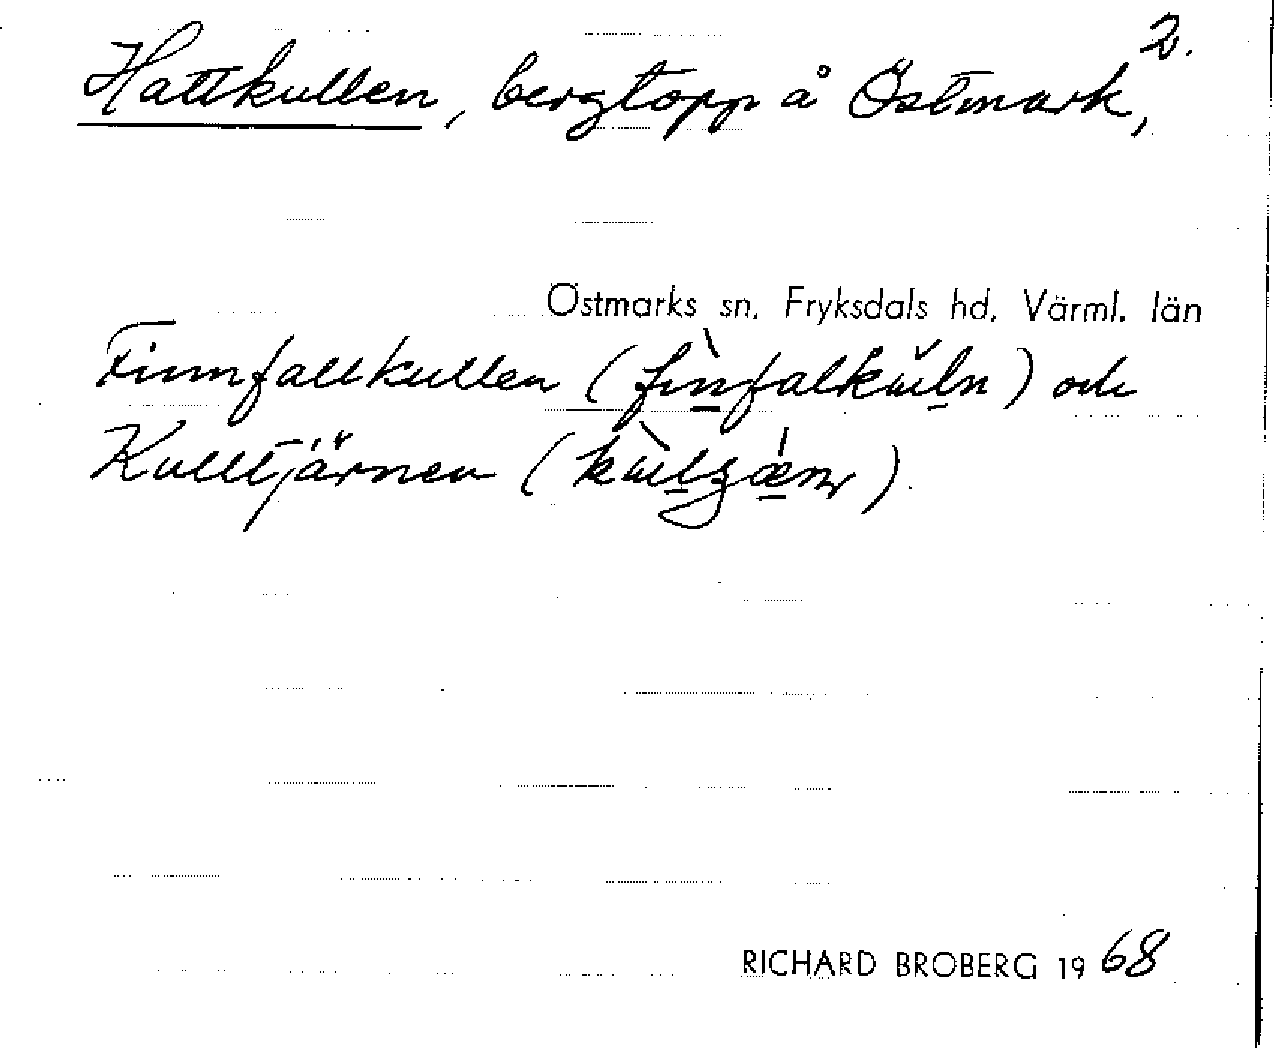 2.
Hattkullen, bergtopp å Östmark,
Östmarks sn, Fryksdals hd, Värml. län
Finnfallkullen (fìnfalkŭln) och
Kulltjärnen ( ).
RICHARD BROBERG 1968